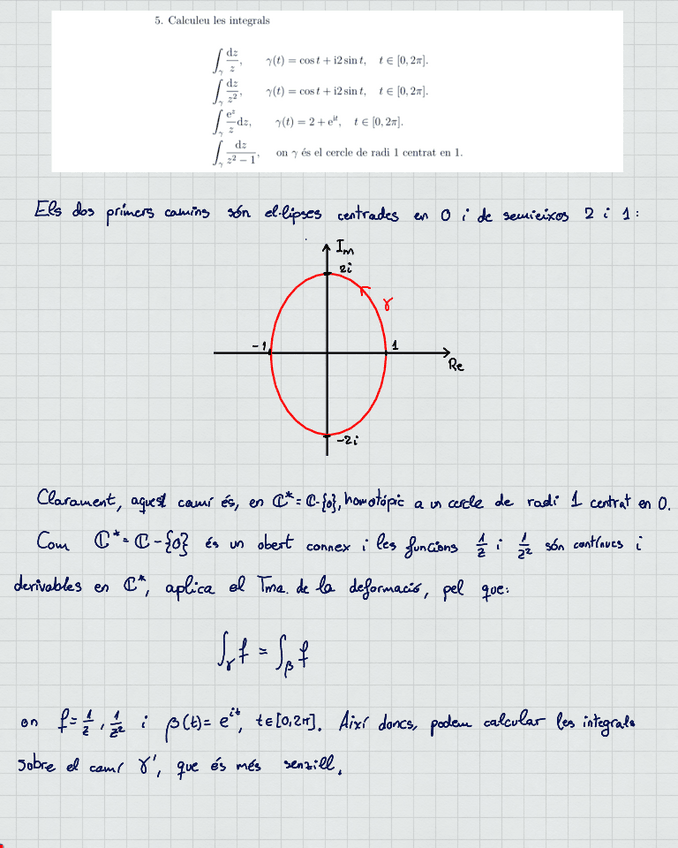 5. Calculeu les integrals
∫_γ dz/z, γ(t) = cos t + i2 sin t, t ∈ [0, 2π].
∫_γ dz/z², γ(t) = cos t + i2 sin t, t ∈ [0, 2π].
∫_γ e^z/z dz, γ(t) = 2 + e^{it}, t ∈ [0, 2π].
∫_γ dz/(z² − 1), on γ és el cercle de radi 1 centrat en 1.
Els dos primers camins són el·lipses centrades en 0 i de semieixos 2 i 1:
Im
2i
γ
-1
1
Re
-2i
Clarament, aquest camí és, en ℂ* = ℂ-{0}, homotópic a un cercle de radi 1 centrat en 0.
Com ℂ* = ℂ-{0} és un obert connex i les funcions 1/z i 1/z² són contínues i
derivables en ℂ*, aplica el Tma. de la deformació, pel que:
∫_γ f = ∫_β f
on f = 1/z, 1/z² i β(t) = e^{it}, t∈[0,2π]. Així doncs, podem calcular les integrals
sobre el camí γ', que és més senzill.